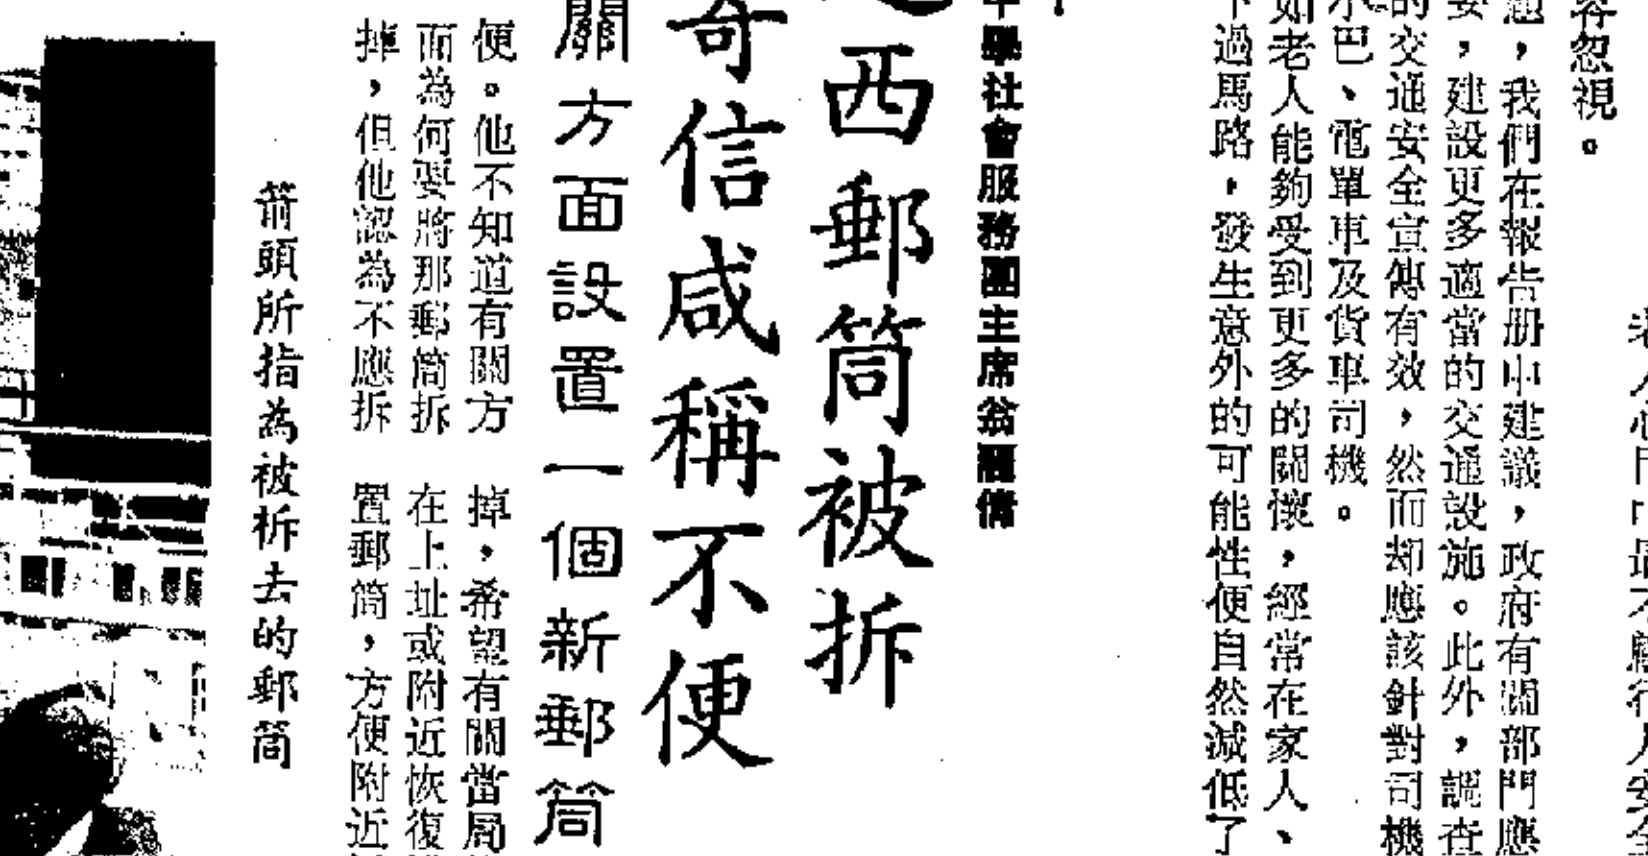 容忽視。
題，我們在報告册中建議，政府有關部門應
要，建設更多適當的交通設施。此外，調查
的交通安全宣傳有效，然而却應該針對司機
水巴、電單車及貨車司機。
如老人能夠受到更多的關懷，經常在家人、
下過馬路，發生意外的可能性便自然減低了
學社會服務團主席翁
西郵筒被拆
寄信咸稱不便
關方面設置一個新郵筒
便。他不知道有關方
面為何要將那郵筒拆
掉，但他認為不應拆
掉，希望有關當局
在上址或附近恢復
置郵筒，方便附近
箭頭所指為被拆去的郵筒